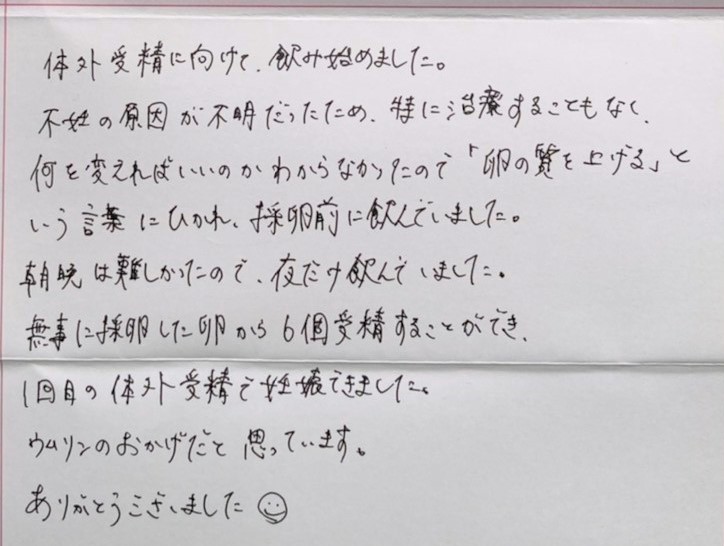 体外受精に向けて、飲み始めました。
不妊の原因が不明だったため、特に治療することもなく、
何を変えればいいのかわからなかったので「卵の質を上げる」と
いう言葉にひかれ、採卵前に飲んでいました。
朝晩は難しかったので、夜だけ飲んでいました。
無事に採卵した卵から6個受精することができ、
1回目の体外受精で妊娠できました。
ウムリンのおかげだと思っています。
ありがとうございました☺